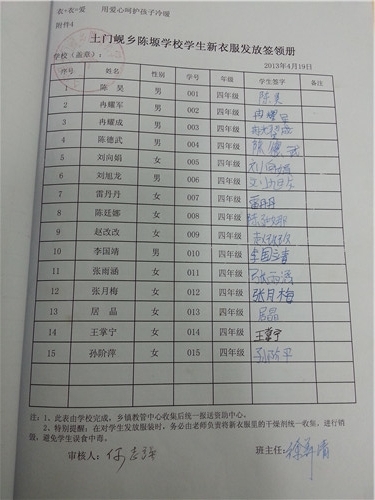 衣+衣=爱 用爱心呵护孩子冷暖
附件4
土门岘乡陈塬学校学生新衣服发放签领册
学校（盖章）： 2013年4月19日
序号 姓名 性别 学号 年级 学生签字 备注
1 陈昊 男 001 四年级 陈昊
2 冉耀军 男 002 四年级 冉耀军
3 冉耀成 男 003 四年级 冉耀成
4 陈德武 男 004 四年级 陈德武
5 刘向娟 女 005 四年级 刘向娟
6 刘旭龙 男 006 四年级
7 雷丹丹 女 007 四年级 雷丹丹
8 陈廷娜 女 008 四年级 陈廷娜
9 赵改改 女 009 四年级 赵改改
10 李国靖 男 010 四年级 李国靖
11 张雨涵 女 011 四年级 张雨涵
12 张月梅 女 012 四年级 张月梅
13 居晶 女 013 四年级 居晶
14 王掌宁 女 014 四年级 王掌宁
15 孙阶萍 女 015 四年级 孙阶平
注：1、此表由学校完成，乡镇教管中心收集后统一报送资助中心。
2、特别提醒：在对学生发放服装时，务必由老师负责将新衣服里的干燥剂统一收集，进行销
毁，避免学生误食中毒。
审核人： 班主任：